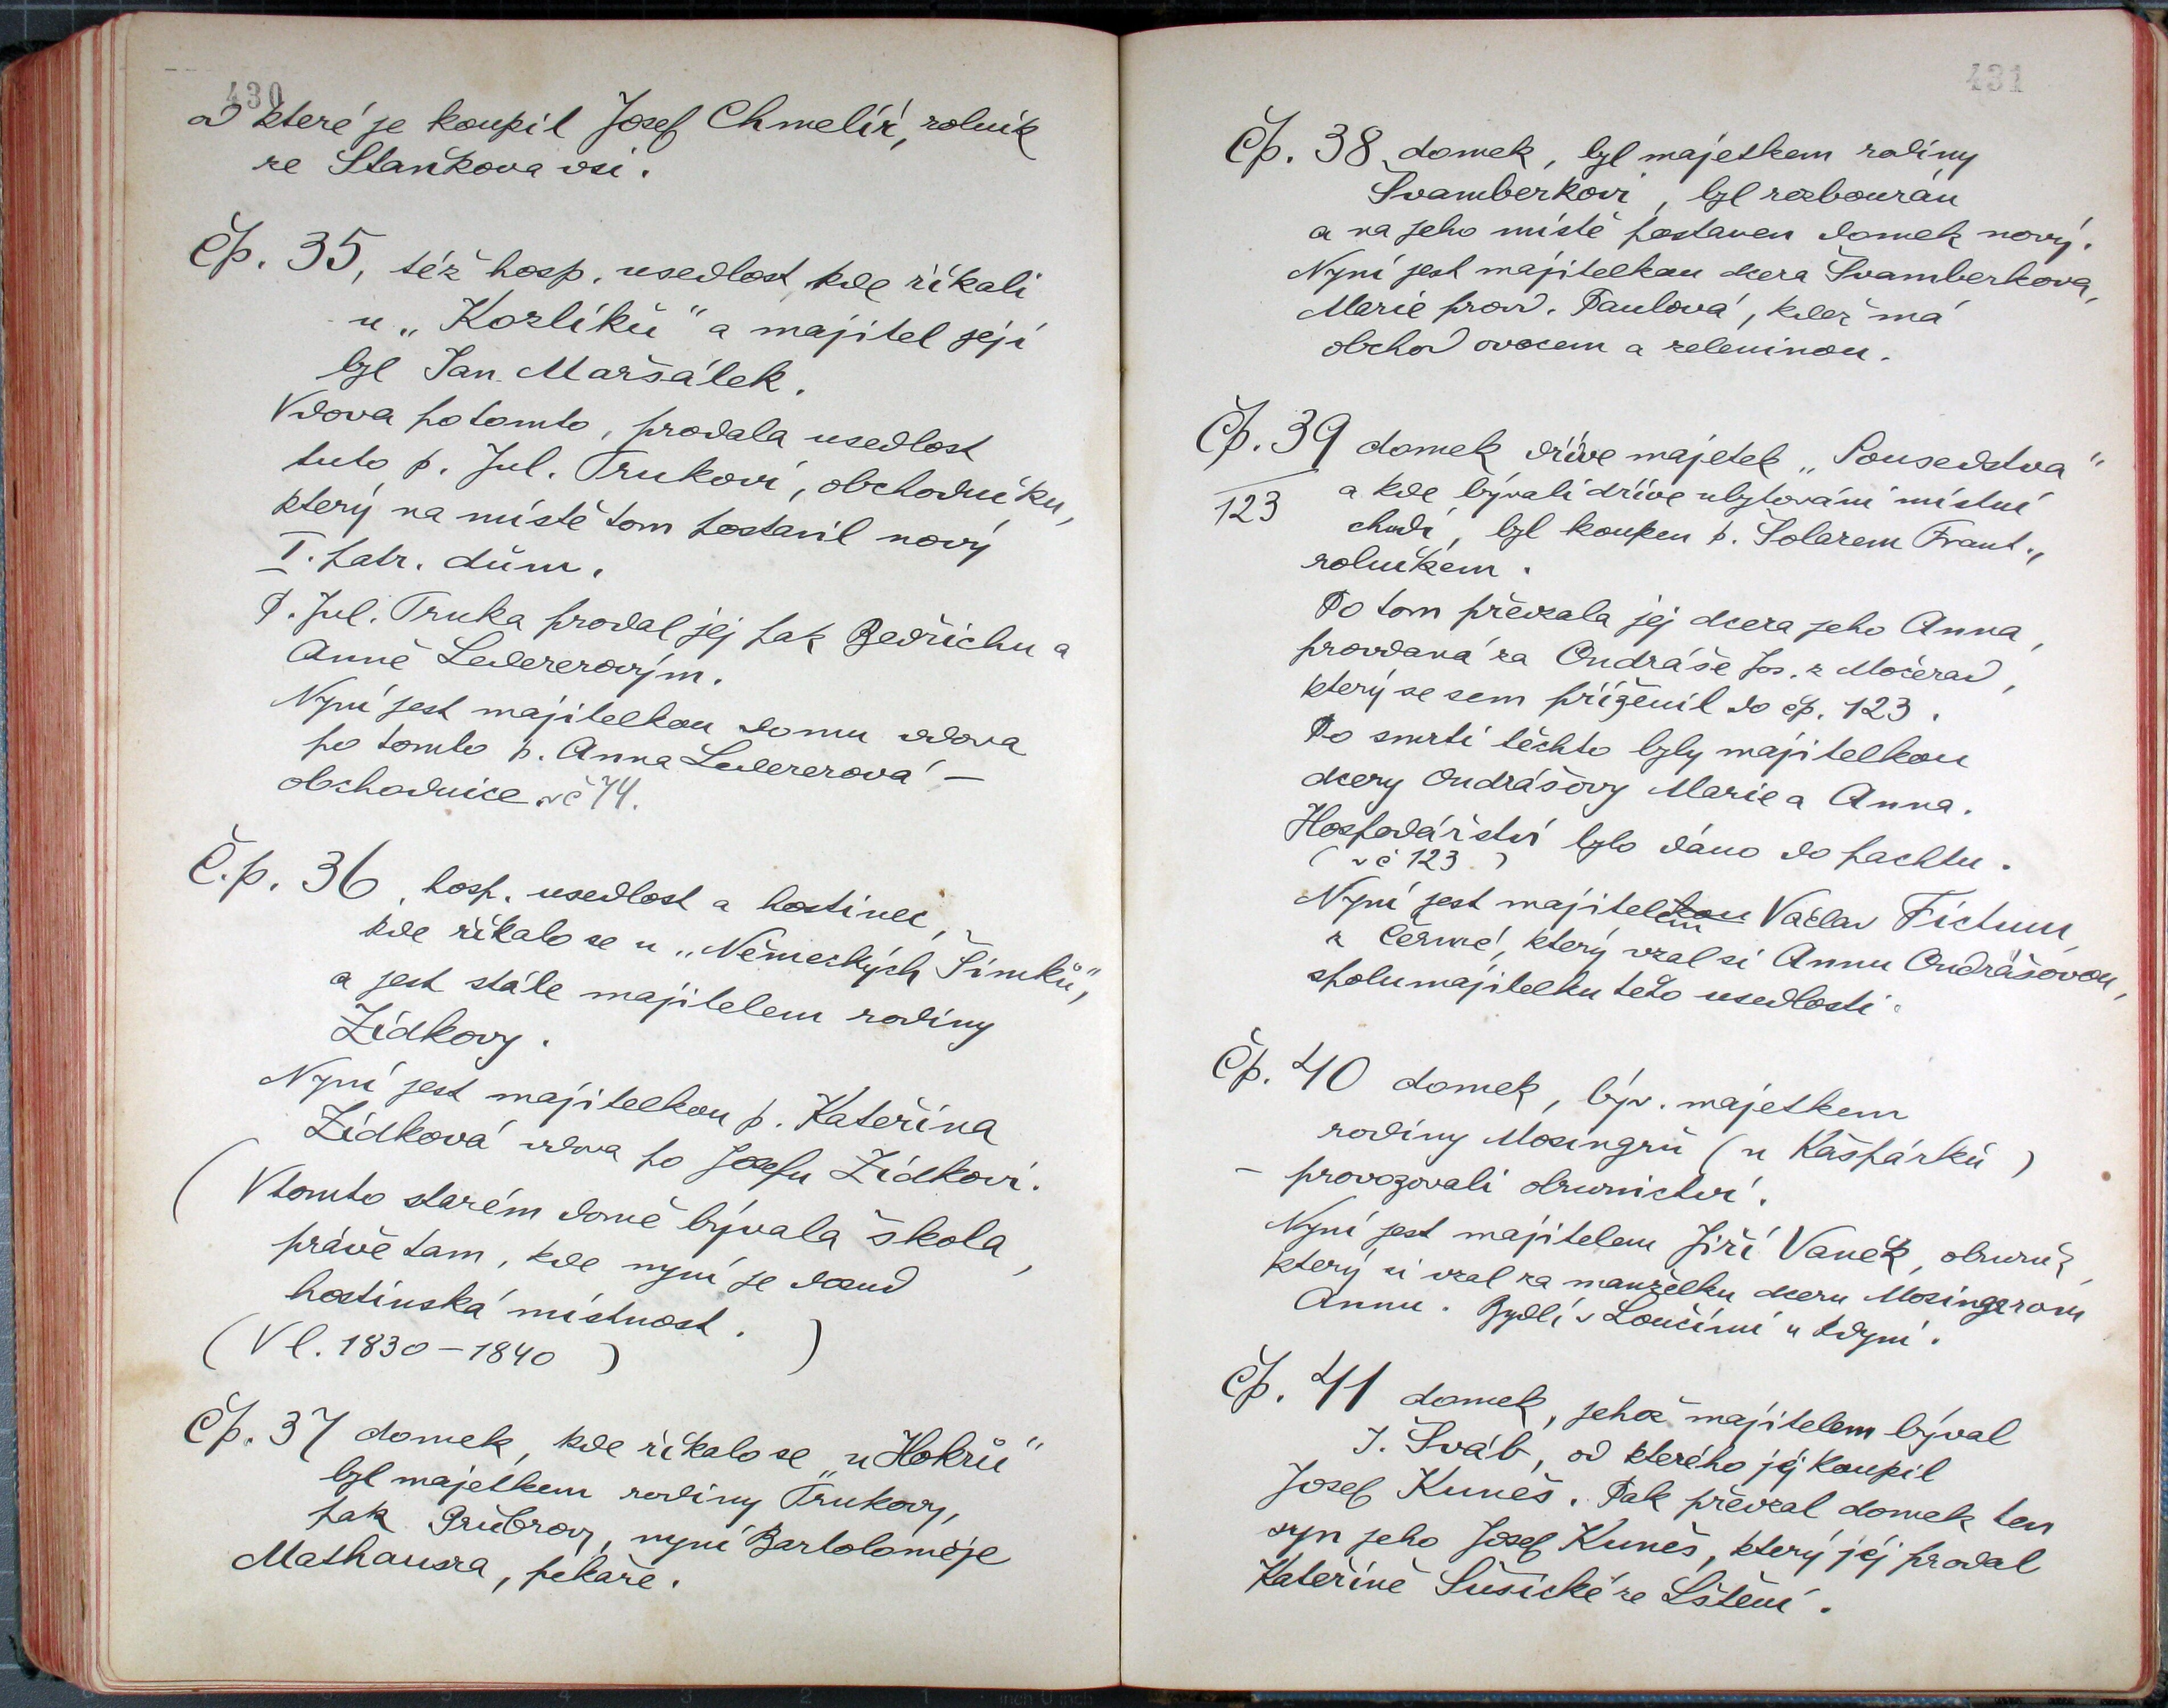 430
od které je koupil Josef Chmelíř, rolník
ze Staňkova vsi.
Čp. 35, též hosp. usedlost kde říkali
u „Kozlíků" a majitel její
byl Jan Maršálek.
Vdova po tomto, prodala usedlost
tuto p. Jul. Trukovi, obchodníku,
který na místě tom postavil nový
I. patr. dům.
P. Jul. Truka prodal jej pak Bedřichu a
Anně Ledererovým.
Nyní jest majitelkou domu vdova
po tomto p. Anna Ledererová –
obchodnice v č 74.
Č.p. 36, hosp. usedlost a hostinec,
kde říkalo se u „Německých Šimků",
a jest stále majitelem rodiny
Židkovy.
Nyní jest majitelkou p. Kateřina
Židková vdova po Josefu Židkovi.
(V tomto starém domě bývala škola,
právě tam, kde nyní je
hostinská místnost. )
(V l. 1830–1840 )
Čp. 37 domek, kde říkalo se „u Hokrů"
byl majetkem rodiny Trukovy,
pak Grubrovy, nyní Bartoloměje
Mathausra, pekaře.
431
Čp. 38, domek, byl majetkem rodiny
Švamberkovi, byl rozbourán
a na jeho místě postaven domek nový.
Nyní jest majitelkou dcera Švamberkova,
Marie provd. Paulová, kdež má
obchod ovocem a zeleninou.
Čp. 39 domek dříve majetek „Sousedstva"
a kde bývali dříve ubytováni místní
123 chudí, byl koupen p. Šolarem Frant.,
rolníkem.
Po tom převzala jej dcera jeho Anna,
provdaná za Ondráše Jos. z Močerad,
který se sem přiženil do čp. 123.
Po smrti těchto byly majitelkou
dcery Ondrášovy Marie a Anna.
Hospodářství bylo dáno do pachtu.
(v č 123 )
Nyní jest majitelem Václav Fictum,
z Čermé, který vzal si Annu Ondrášovou,
spolumajitelku této usedlosti.
Čp. 40 domek, býv. majetkem
rodiny Mosingrů (u Kašpárků)
– provozovali obuvnictví.
Nyní jest majitelem Jiří Vaněk, obuvník,
který si vzal za manželku dceru Mosingerovu
Annu. Bydlí v Loučimi u Kdyní.
Čp. 41 domek, jehož majitelem býval
J. Šváb, od kterého jej koupil
Josef Kuneš. Pak převzal domek ten
syn jeho Josef Kuneš, který jej prodal
Kateřině Sušické ze Lštění.